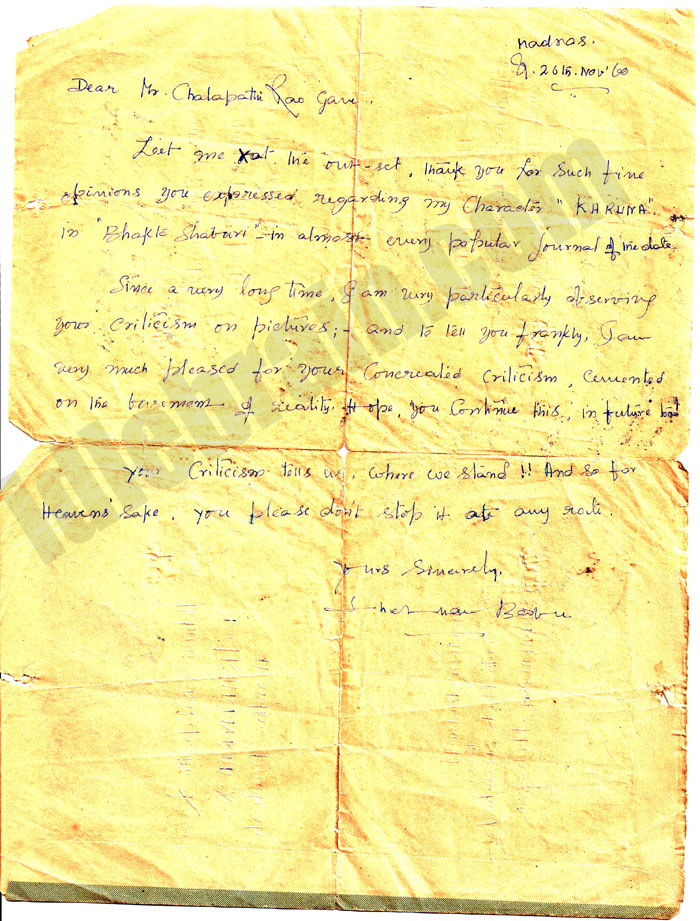 Madras.
26th. Nov' 60
Dear Mr. Chalapathi Rao Garu.
Let me at the out-set, thank you for such fine
opinions you expressed regarding my Character "KARUNA"
in "Bhakta Shabari" - in almost every popular Journal of the date.
Since a very long time, I am very particularly observing
your criticism on pictures; - and to tell you frankly, I am
very much pleased for your Concreated Criticism, Cemented
on the basement of reality. Hope, you Continue this, in future too!
Your Criticism tells us, where we stand!! And so for
Heavens' Sake, you please don't stop it at any rate.
Yours Sincerely.
Shobhan Babu